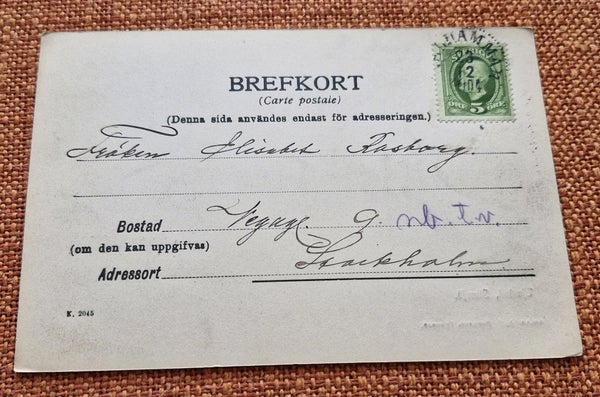 BREFKORT
(Carte postale)
(Denna sida användes endast för adresseringen.)
Fröken Elisabet Rosborg.
Bostad Vegag. 9. nb. t.v.
(om den kan uppgifvas)
Adressort Stockholm
K. 2045
SVERIGE
5 2
ÖRE 5 ÖRE